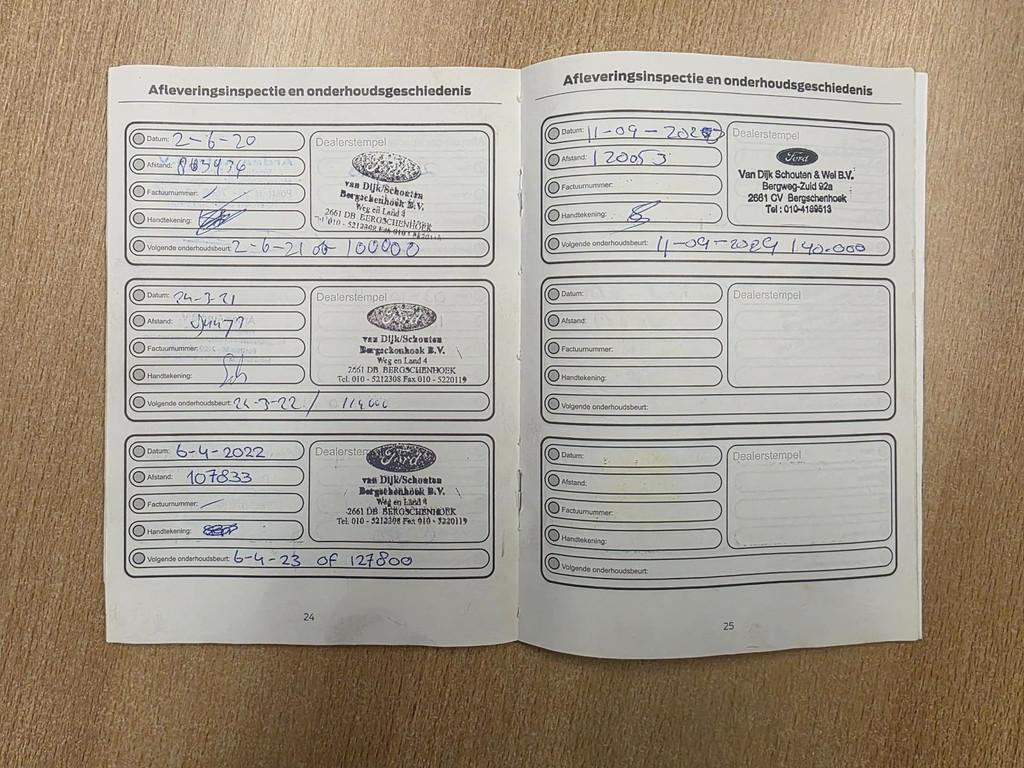 Afleveringsinspectie en onderhoudsgeschiedenis
Datum: 2-6-20
Afstand:
Factuurnummer: /
Handtekening:
Volgende onderhoudsbeurt: 2-6-21 of 100000
Dealerstempel
van Dijk/Schouten
Bergschenhoek B.V.
Weg en Land 4
2661 DB BERGSCHENHOEK
010 - 5212308 Fax 010 - 5220119
Datum: 24-3-21
Afstand:
Factuurnummer:
Handtekening:
Volgende onderhoudsbeurt: 24-3-22 /
Dealerstempel
Ford
van Dijk/Schouten
Bergschenhoek B.V.
Weg en Land 4
2661 DB BERGSCHENHOEK
Tel. 010 - 5212308 Fax 010 - 5220119
Datum: 6-4-2022
Afstand: 107833
Factuurnummer: /
Handtekening:
Volgende onderhoudsbeurt: 6-4-23 OF 127800
Dealerstempel
Ford
van Dijk/Schouten
Bergschenhoek B.V.
Weg en Land 4
2661 DB BERGSCHENHOEK
Tel. 010 - 5212308 Fax 010 - 5220119
24
Afleveringsinspectie en onderhoudsgeschiedenis
Datum: 11-09-2023
Afstand: 120053
Factuurnummer:
Handtekening:
Volgende onderhoudsbeurt: 11-09-2024 140.000
Dealerstempel
Ford
Van Dijk Schouten & Wel B.V.
Bergweg-Zuid 92a
2661 CV Bergschenhoek
Tel : 010-4189513
Datum:
Afstand:
Factuurnummer:
Handtekening:
Volgende onderhoudsbeurt:
Dealerstempel
Datum:
Afstand:
Factuurnummer:
Handtekening:
Volgende onderhoudsbeurt:
Dealerstempel
25